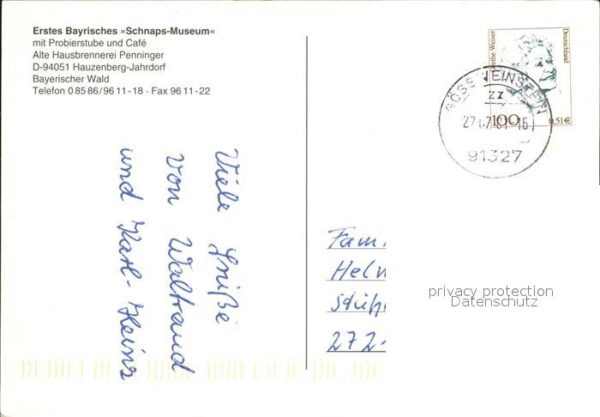 Erstes Bayrisches »Schnaps-Museum«
mit Probierstube und Café
Alte Hausbrennerei Penninger
D-94051 Hauzenberg-Jahrdorf
Bayerischer Wald
Telefon 0 85 86/96 11-18 · Fax 96 11-22
Deutschland
100
0,51€
GÖSSWEINSTEIN
zz
91327
Viele Grüße
von Waltraud
und Karl-Heinz
Fam.
Helm
272
privacy protection
Datenschutz